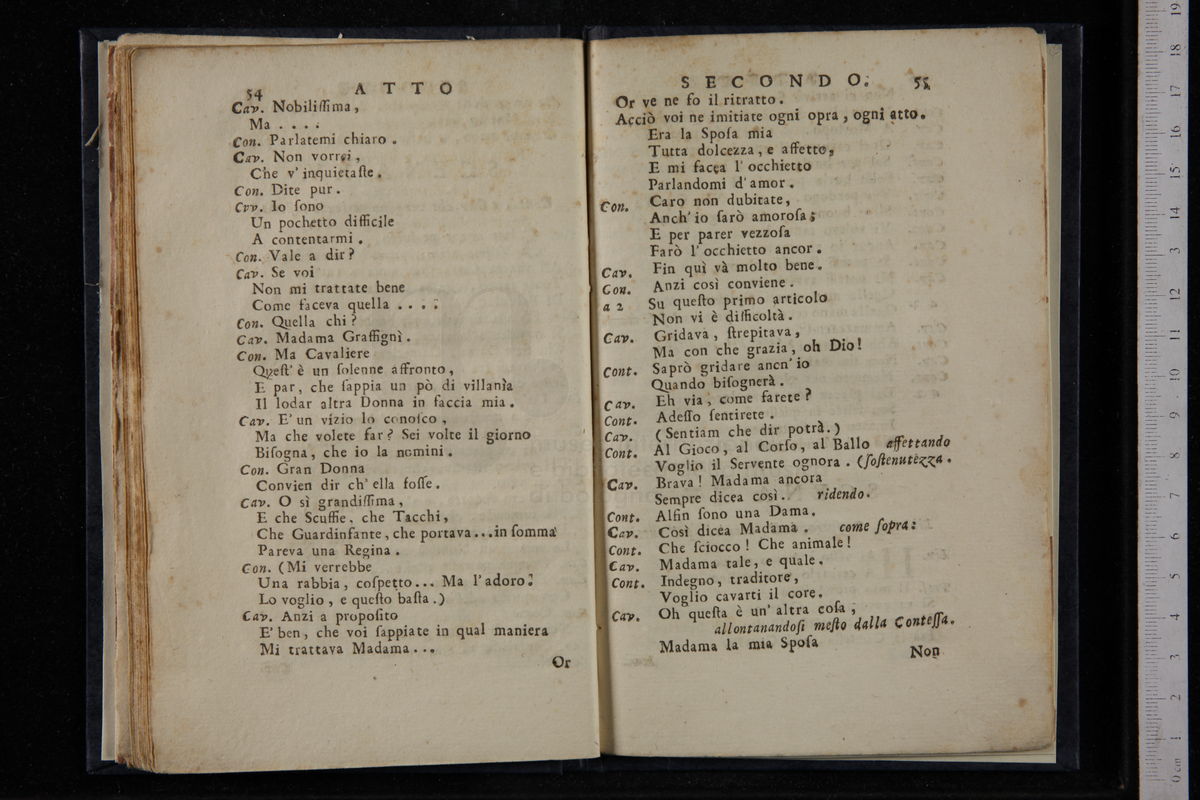 54 ATTO
Cav. Nobiliſſima,
Ma . . . .
Con. Parlatemi chiaro.
Cav. Non vorrei,
Che v' inquietaſte.
Con. Dite pur.
Cvv. Io ſono
Un pochetto difficile
A contentarmi.
Con. Vale a dir?
Cav. Se voi
Non mi trattate bene
Come faceva quella . . . .
Con. Quella chi?
Cav. Madama Graffignì.
Con. Ma Cavaliere
Queſt' è un ſolenne affronto,
E par, che ſappia un pò di villanìa
Il lodar altra Donna in faccia mia.
Cav. E' un vizio lo conoſco,
Ma che volete far? Sei volte il giorno
Biſogna, che io la nomini.
Con. Gran Donna
Convien dir ch' ella foſſe.
Cav. O sì grandiſſima,
E che Scuffie, che Tacchi,
Che Guardinfante, che portava...in ſomma
Pareva una Regina.
Con. (Mi verrebbe
Una rabbia, coſpetto... Ma l'adoro:
Lo voglio, e queſto baſta.)
Cav. Anzi a propoſito
E' ben, che voi ſappiate in qual maniera
Mi trattava Madama...
Or
SECONDO. 55
Or ve ne fo il ritratto.
Acciò voi ne imitiate ogni opra, ogni atto.
Era la Spoſa mia
Tutta dolcezza, e affetto,
E mi facea l' occhietto
Parlandomi d' amor.
Con. Caro non dubitate,
Anch' io ſarò amoroſa;
E per parer vezzoſa
Farò l' occhietto ancor.
Cav. Fin quì và molto bene.
Con. Anzi così conviene.
a 2 Su queſto primo articolo
Non vi è difficoltà.
Cav. Gridava, ſtrepitava,
Ma con che grazia, oh Dio!
Cont. Saprò gridare ancn' io
Quando biſognerà.
Cav. Eh via, come farete?
Cont. Adeſſo ſentirete.
Cav. (Sentiam che dir potrà.)
Cont. Al Gioco, al Corſo, al Ballo affettando
Voglio il Servente ognora. (ſoſtenutezza.
Cav. Brava! Madama ancora
Sempre dicea così. ridendo.
Cont. Alfin ſono una Dama.
Cav. Così dicea Madama. come ſopra:
Cont. Che ſciocco! Che animale!
Cav. Madama tale, e quale.
Cont. Indegno, traditore,
Voglio cavarti il core.
Cav. Oh queſta è un' altra coſa;
allontanandoſi meſto dalla Conteſſa.
Madama la mia Spoſa
Non
0 cm 1 2 3 4 5 6 7 8 9 10 11 12 13 14 15 16 17 18 19